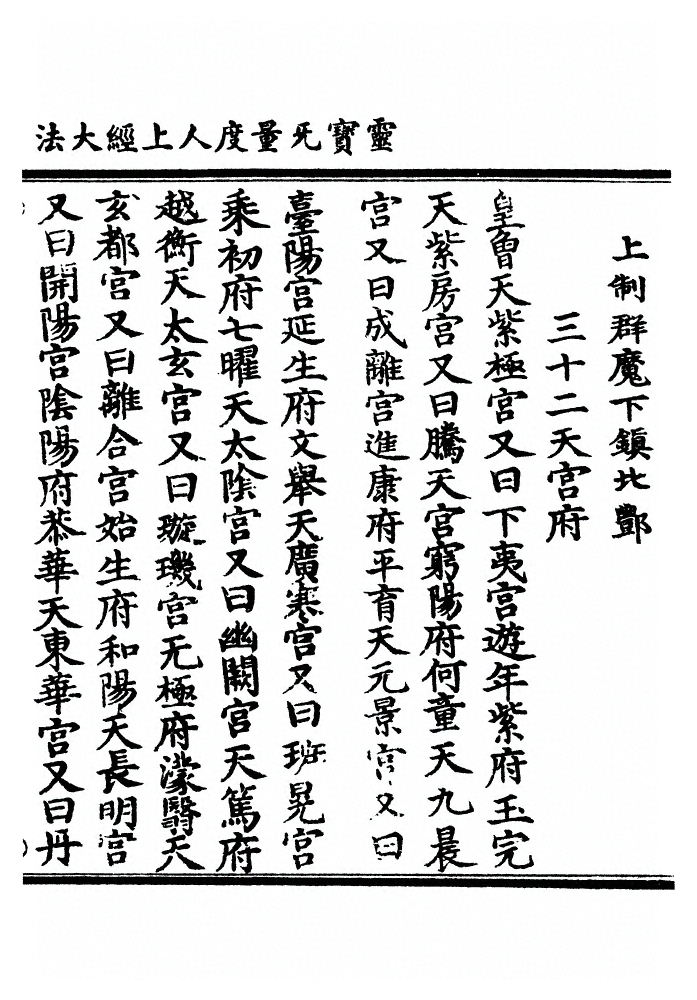 靈寶无量度人上經大法
上制群魔下鎮北酆
三十二天宮府
皇魯天紫極宮又曰下夷宮遊年紫府玉完
天紫房宮又曰騰天宮窮陽府何童天九晨
宮又曰成離宮進康府平育天元景宮又曰
臺陽宮延生府文舉天廣寒宮又曰班晃宮
乘初府七曜天太陰宮又曰幽闕宮天篤府
越衡天太玄宮又曰璇璣宮无極府濛翳天
玄都宮又曰離合宮始生府和陽天長明宮
又曰開陽宮陰陽府恭華天東華宮又曰丹